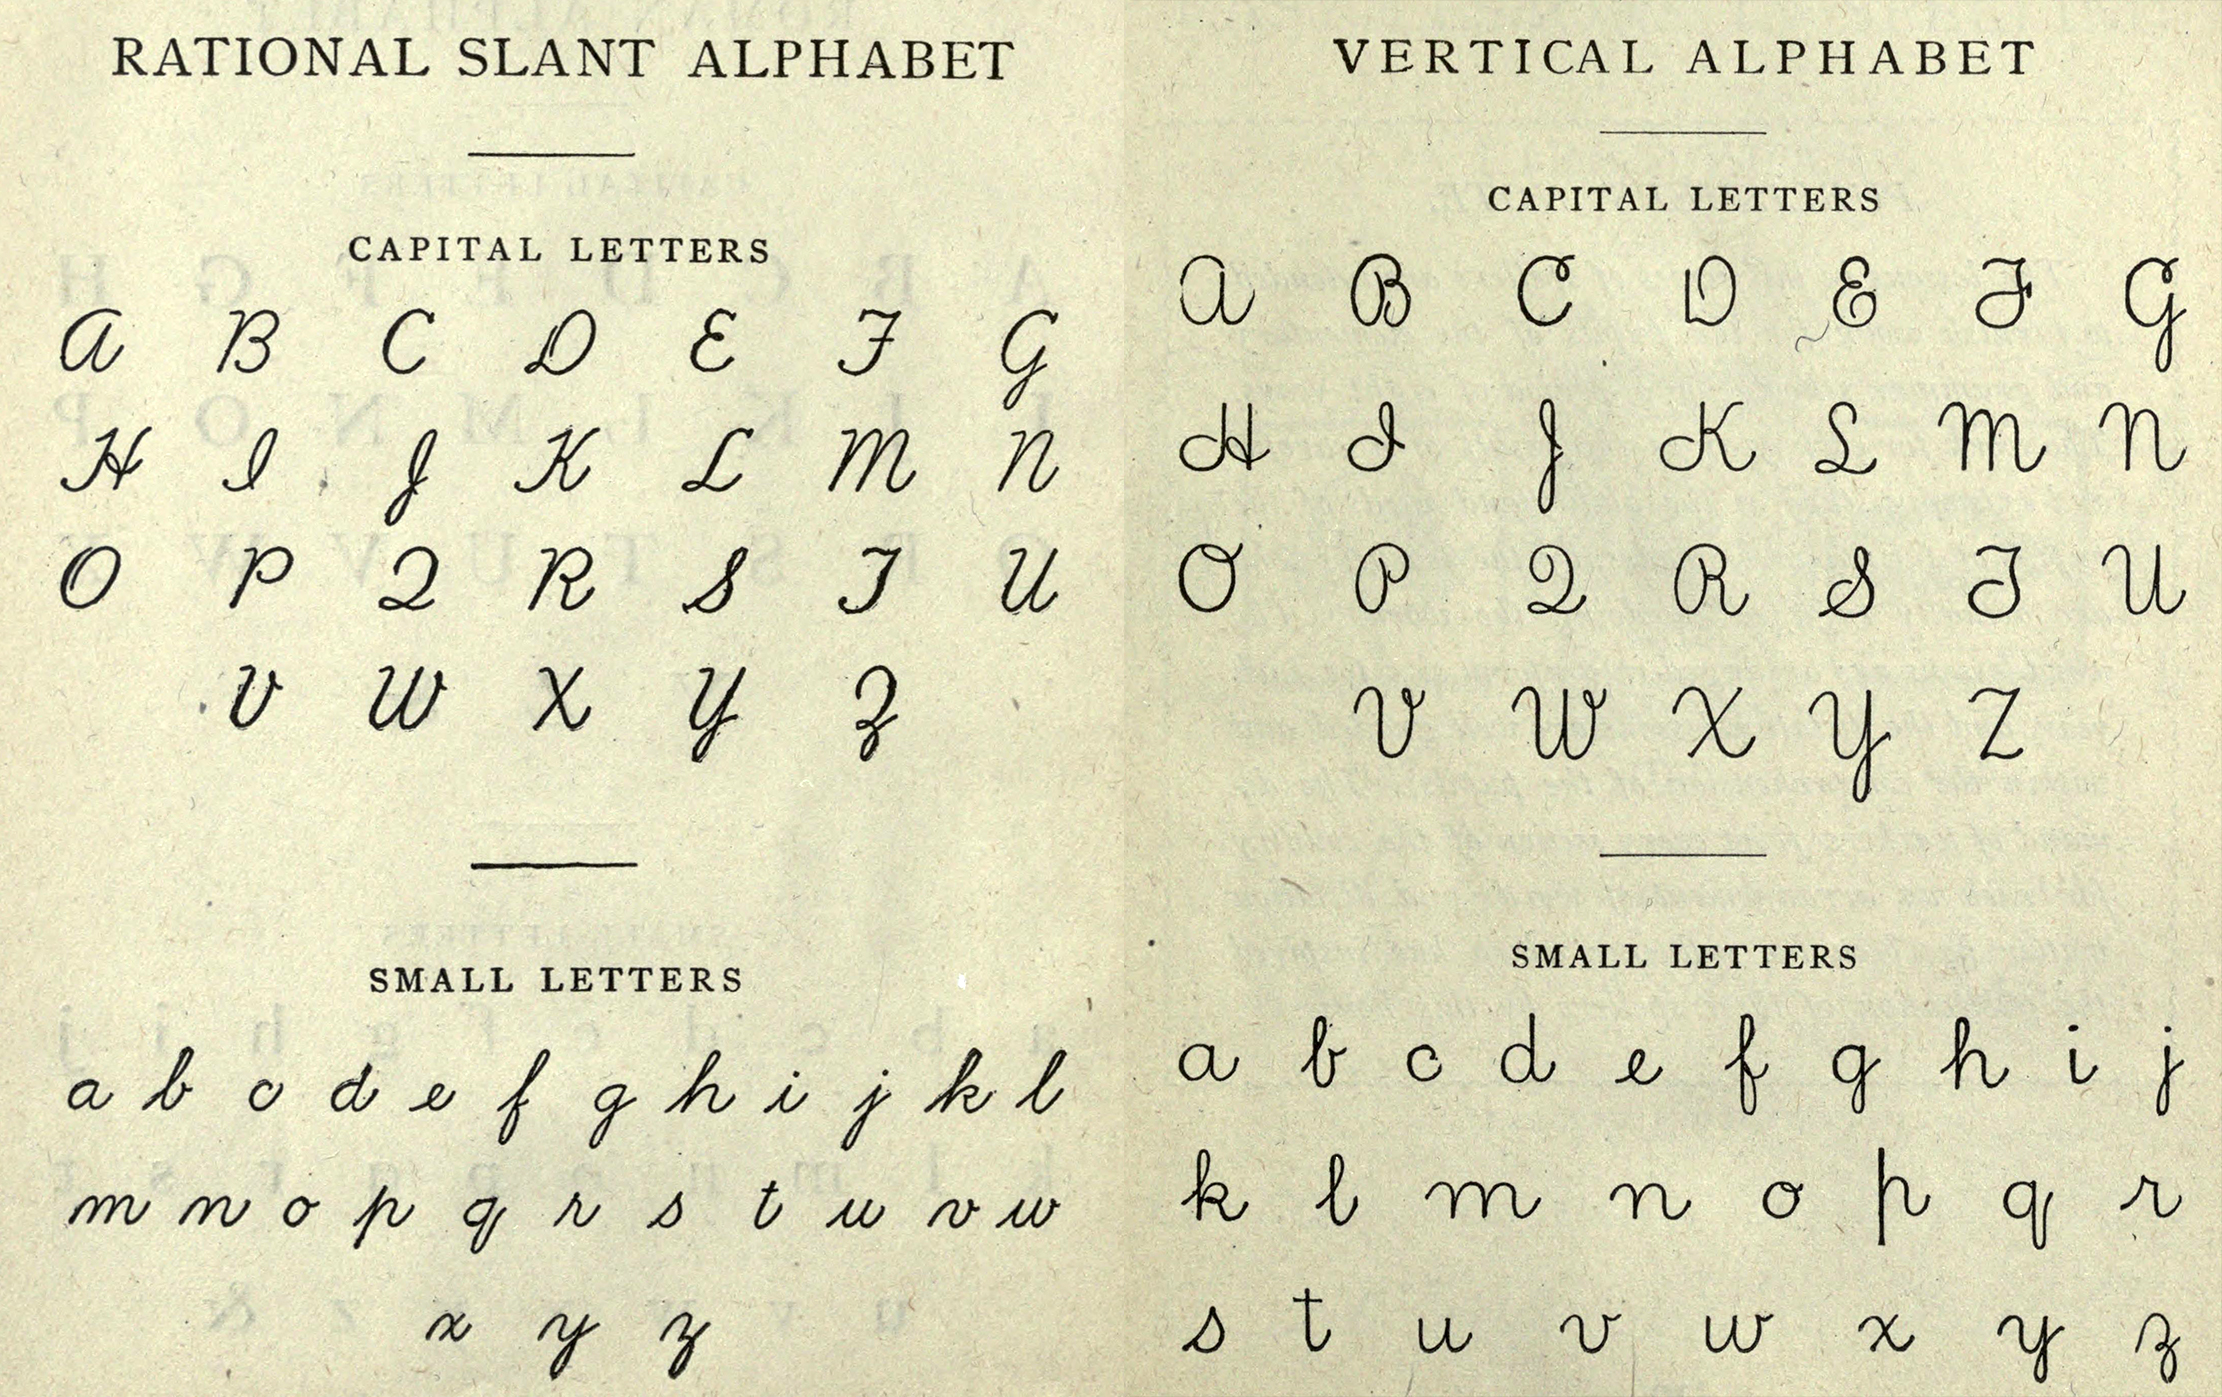 RATIONAL SLANT ALPHABET
CAPITAL LETTERS
A B C D E F G
H I J K L M N
O P Q R S T U
V W X Y Z
SMALL LETTERS
a b c d e f g h i j k l
m n o p q r s t u v w
x y z
VERTICAL ALPHABET
CAPITAL LETTERS
A B C D E F G
H I J K L M N
O P Q R S T U
V W X Y Z
SMALL LETTERS
a b c d e f g h i j
k l m n o p q r
s t u v w x y z